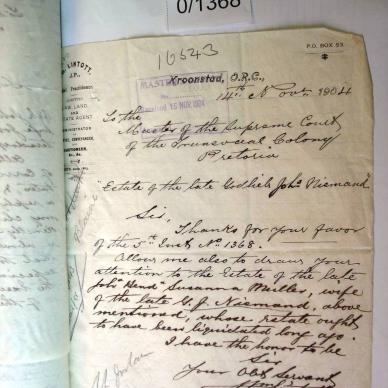 0/1368
16543
LINTOTT,
J.P.,
P.O. BOX 53
Kroonstad, O.R.C.,
14th Novr. 1904
MAST
Received 15 NOV 1904
To the
Master of the Supreme Court
of the Transvaal Colony
Pretoria
"Estate of the late Gothlieb Johs Niemand"
Sir,
Thanks for your favor
of the 5th Inst No 1368.
Allow me also to draw your
attention to the Estate of the late
Johs Hend Susanna Muller, wife
of the late G. J. Niemand, above
mentioned, whose estate ought
to have been liquidated long ago.
I have the honor to be
Sir
Your Obt Servant